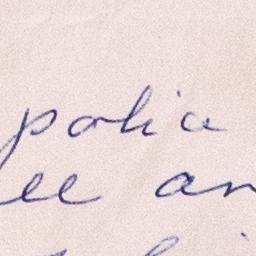 police
ee an